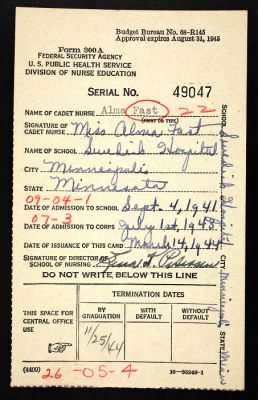 Budget Bureau No. 68-R145
Approval expires August 31, 1945
Form 300A
FEDERAL SECURITY AGENCY
U. S. PUBLIC HEALTH SERVICE
DIVISION OF NURSE EDUCATION
SERIAL NO. 49047
NAME OF CADET NURSE Alma Fast 22
(PRINT OR TYPE)
SIGNATURE OF CADET NURSE Miss Alma Fast
SCHOOL Swedish Hospital
CITY Minneapolis
STATE Minnesota
09-04-1
DATE OF ADMISSION TO SCHOOL Sept. 4, 1941
07-3
DATE OF ADMISSION TO CORPS July 1st 1943
DATE OF ISSUANCE OF THIS CARD March 14, 1944
SIGNATURE OF DIRECTOR OF SCHOOL OF NURSING
DO NOT WRITE BELOW THIS LINE
THIS SPACE FOR CENTRAL OFFICE USE
TERMINATION DATES
BY GRADUATION
WITH DEFAULT
WITHOUT DEFAULT
11/25/44
(4409) 26 -05-4
16-38249-1
SCHOOL Swedish Hospital CITY Minneapolis STATE Minn